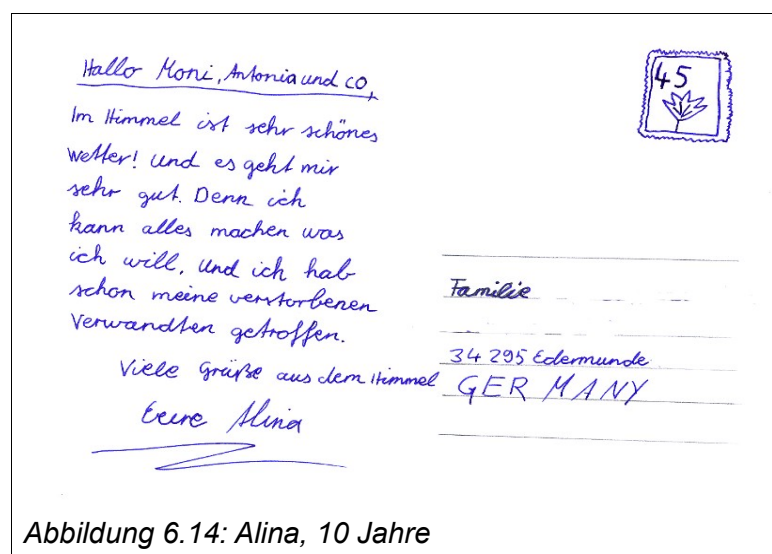 Hallo Moni, Antonia und CO,
Im Himmel ist sehr schönes
Wetter! Und es geht mir
sehr gut. Denn ich
kann alles machen was
ich will. Und ich hab
schon meine verstorbenen
Verwandten getroffen.
Viele Grüße aus dem Himmel
Eure Alina
45
Familie
34 295 Edermunde
GERMANY
Abbildung 6.14: Alina, 10 Jahre